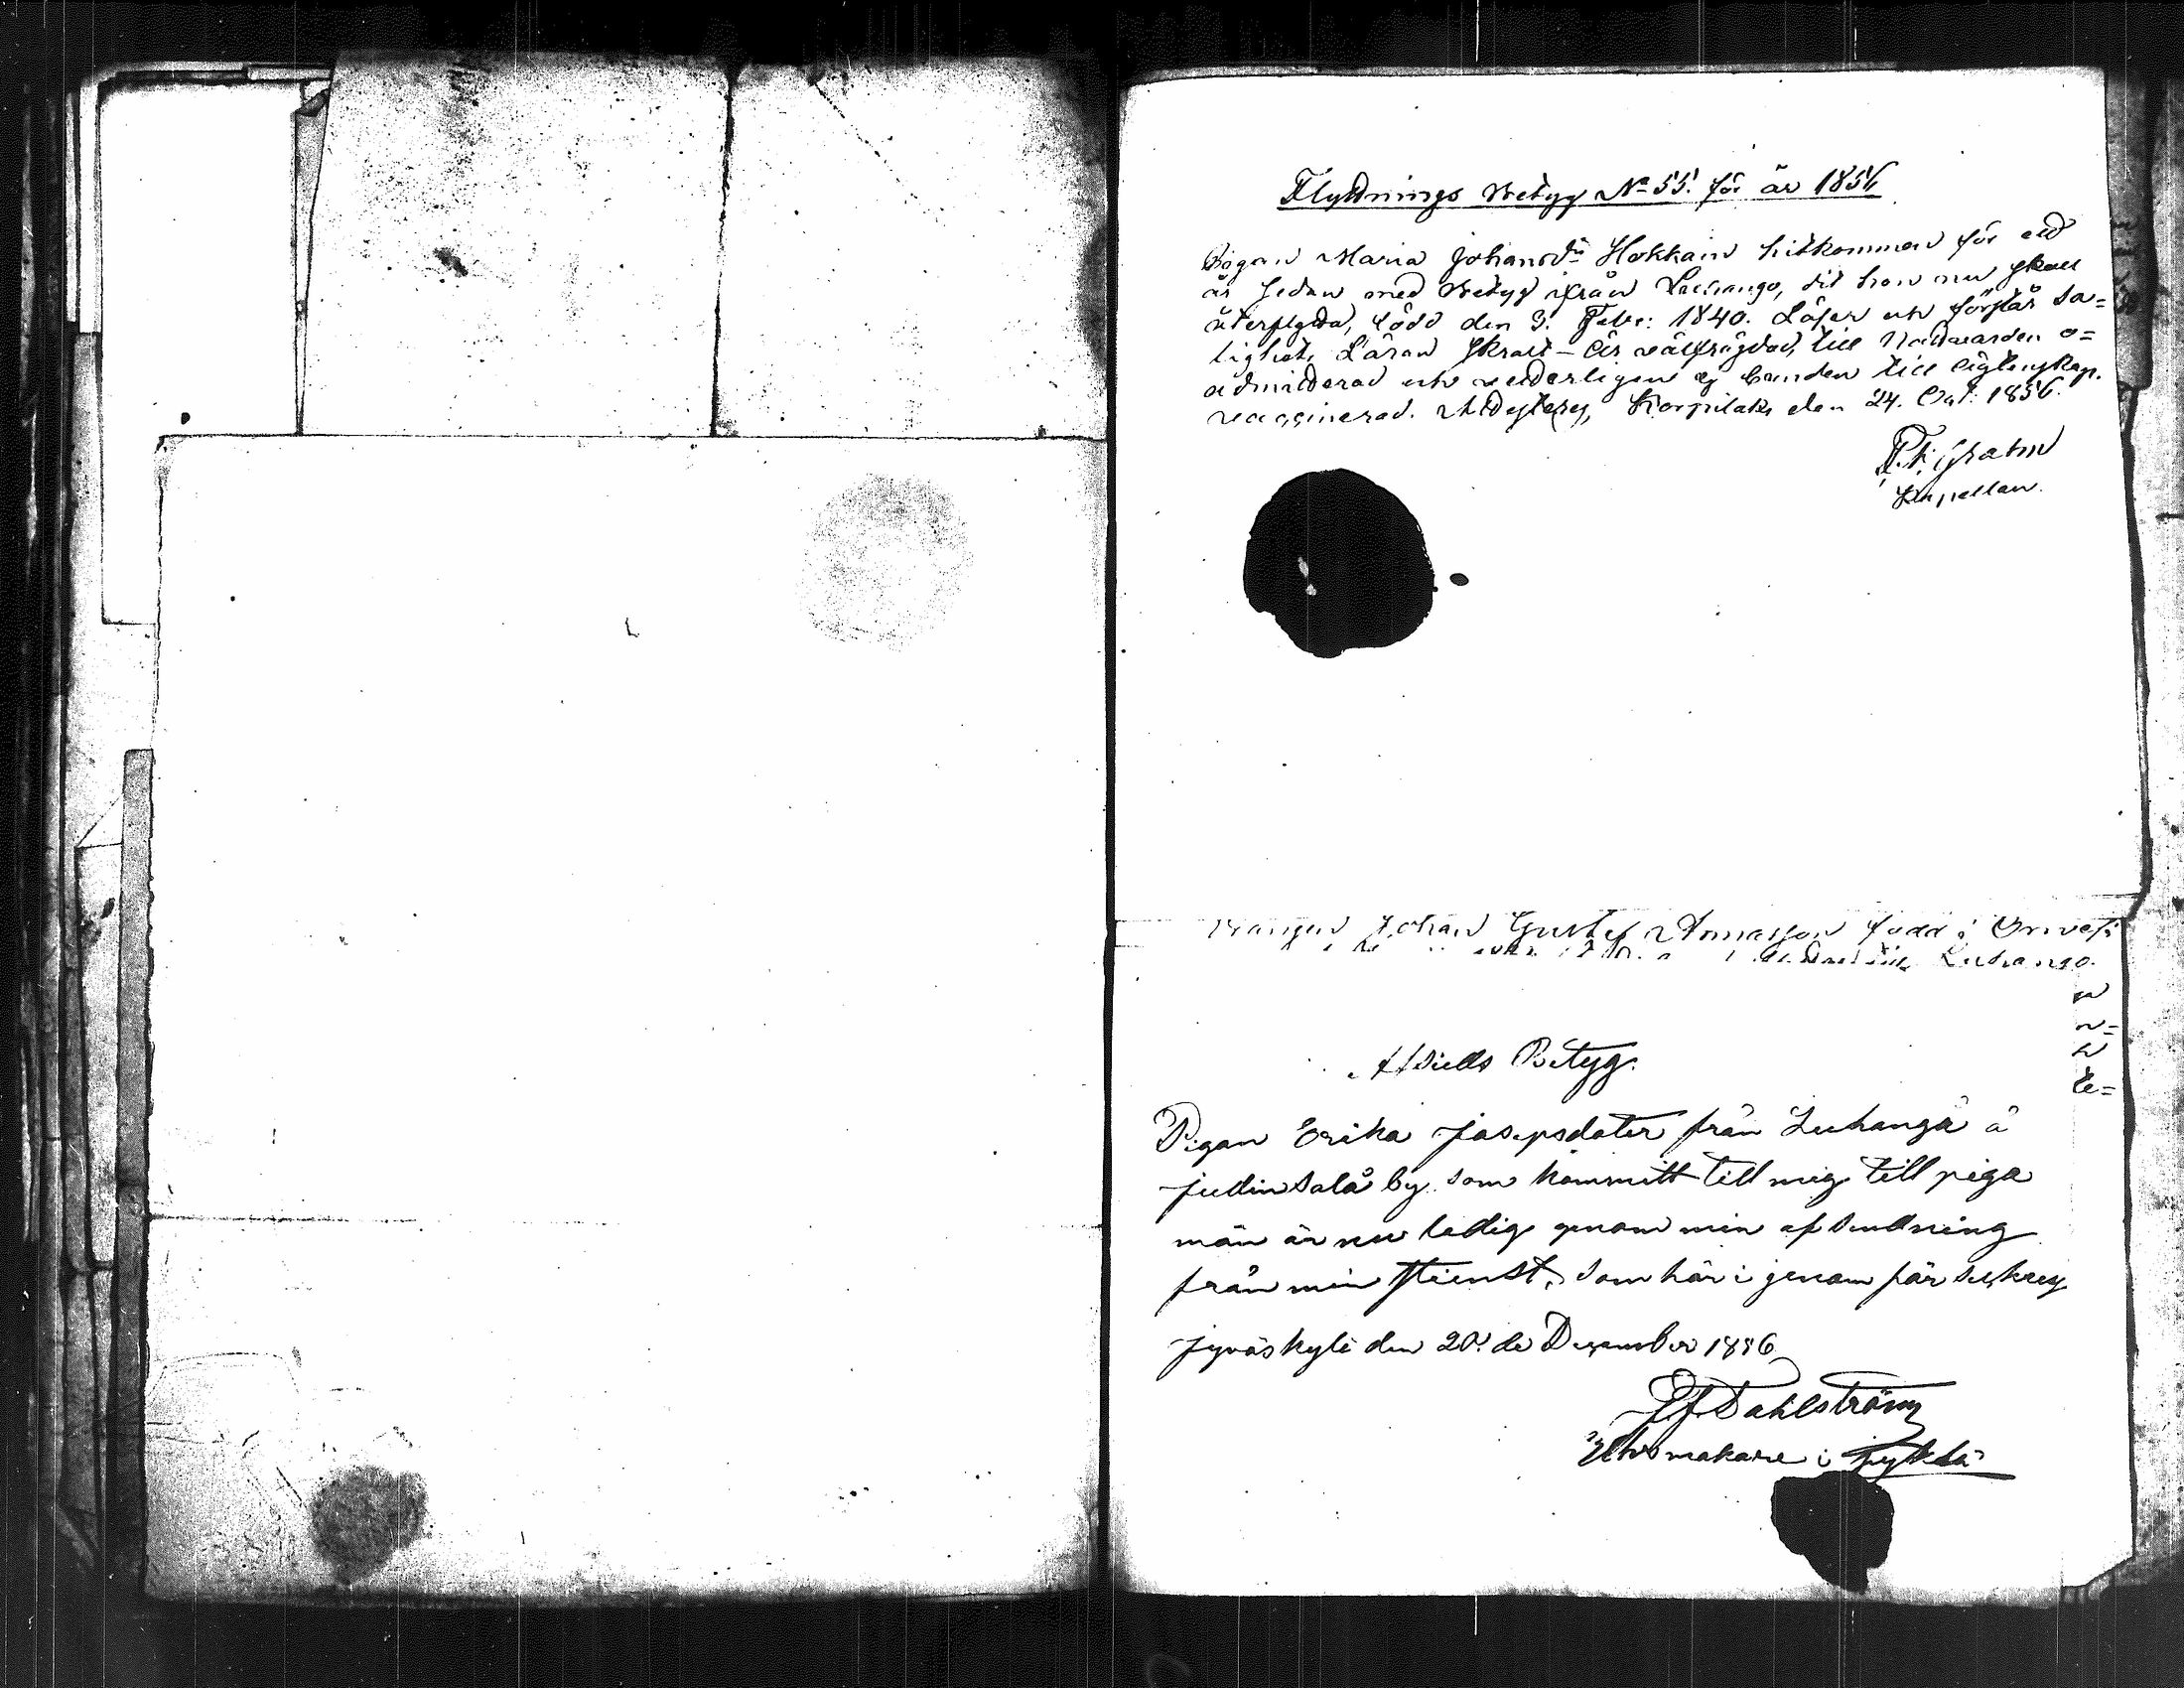 Flyttnings Betyg No 55. för år 1856
Pigan Maria Johansdr Hokkain hitkommen för ett
år sedan med Betyg ifrån Luhango, dit hon nu skall
återflytta, född den 3. Febr: 1840. Läser och förstår sa-
lighets Läran svart - är välfrägdad, till Nattvarden o=
admitterad och veterligen ej bunden till ägtenskap.
vaccinerad. Attesteras, Korpilaks den 24. Oct: 1856.
Grahn
Kapellan.
Drängen Johan Gustaf Thomasson född i
Luhango.
n=
te=
Afskeds Betyg.
Pigan Erika Josepsdoter från Luhanga å
Judinsalå by som kommitt till mig till piga
män är nu ledig genom min afsendning
från min tienst, som här i genom
Jyväskylä den 20: de December 1856
Dahlström
Uhrmakare i Jyklä